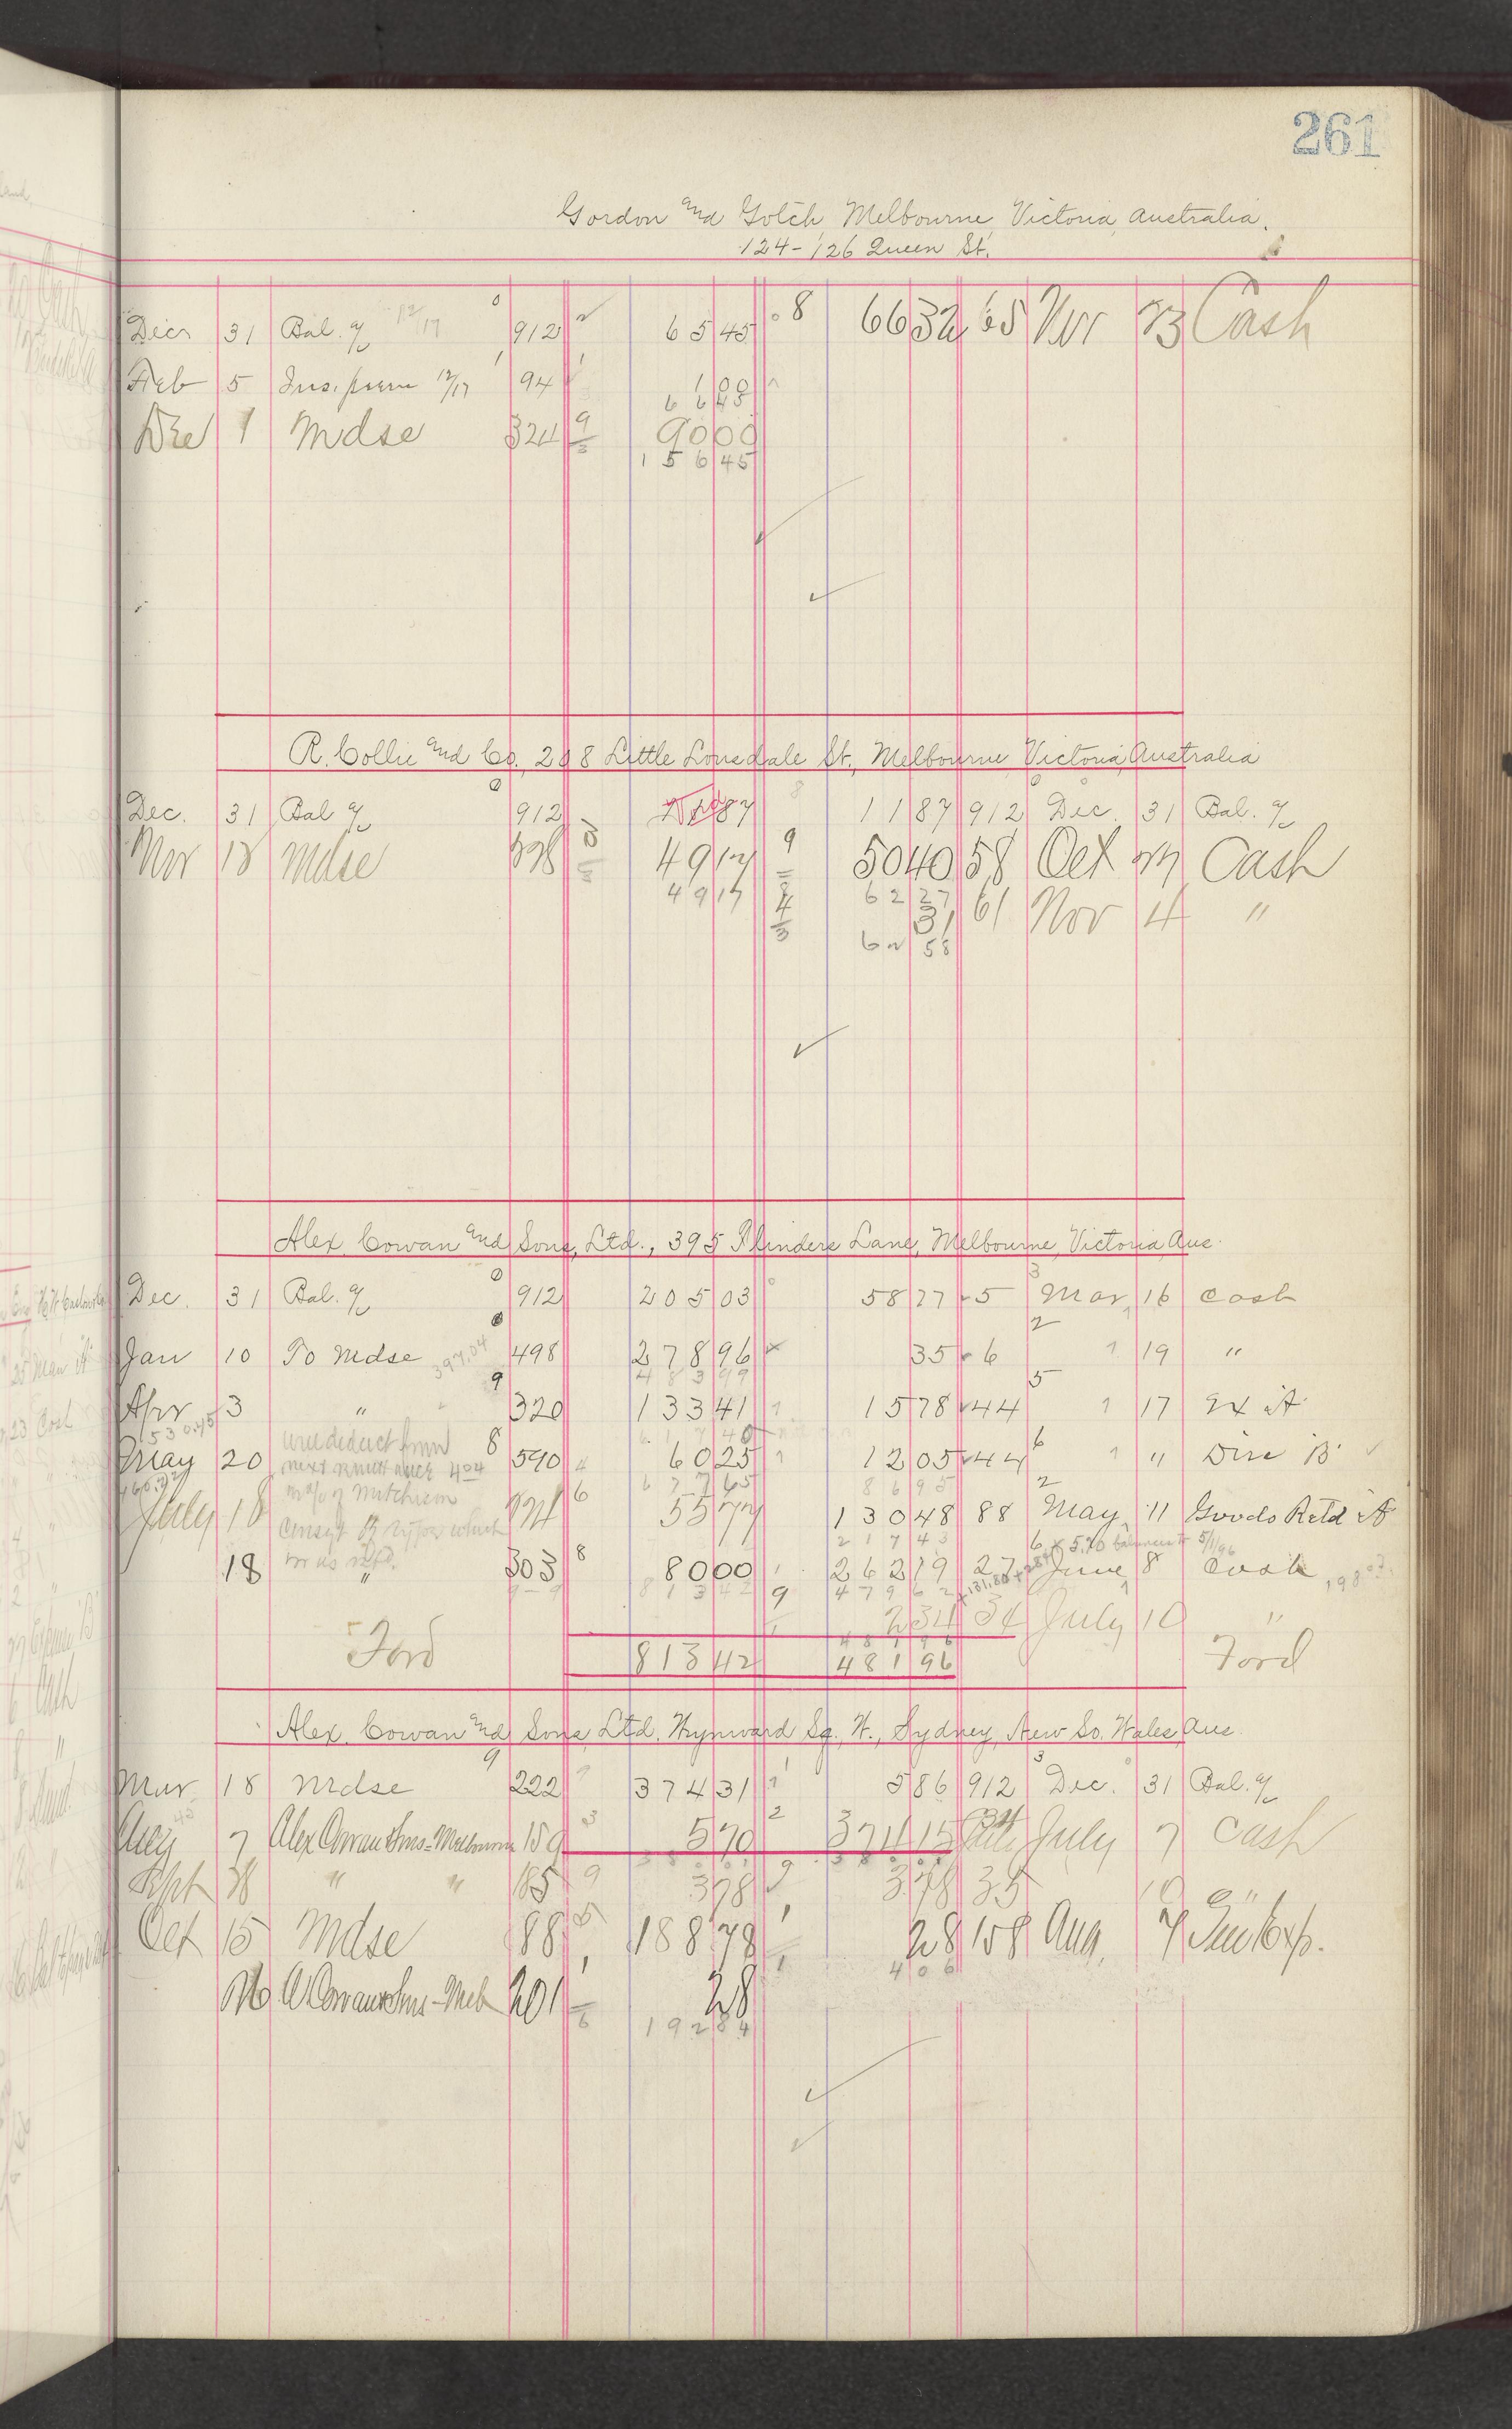 261
Gordon and Gotch, Melbourne, Victoria, Australia.
124-126 Queen St.
Dec 31 Bal. 12/17 912 65 45 66 32 65 Nov 23 Cash
Feb 5 Ins. prem 12/17 94 1 00
66 45
Dec 1 Mdse 324 90 00
156 45
R. Collie and Co. 208 Little Lonsdale St., Melbourne Victoria, Australia
Dec. 31 Bal 912 11 87 11 87 912 Dec. 31 Bal.
Nov 18 Mdse 49 17 50 40 58 Oct 27 Cash
49 17 62 27
31 61 Nov 4 "
62 58
Alex. Cowan and Sons, Ltd., 395 Flinders Lane, Melbourne, Victoria, Aus.
Dec. 31 Bal. 912 205 03 58 27 5 Mar 16 Cash
Jan 10 To Mdse 397.04 498 278 96 35 6 19 "
483 99
Apr 3 " 320 133 41 15 78 44 17
530.45 617 40
May 20 will deduct from 590 60 25 12 05 44 " Disc B
next 404 677 65 86 95
July 18 55 77 130 48 88 May 11 Goods Retd
217 43
18 " 303 80 00 262 19 27 June 8 Cash
813 42 479 62
2 34 34 July 10 "
481 96
Ford 813 42 481 96 Ford
Alex. Cowan and Sons, Ltd. Wynward Sq. W., Sydney, New So. Wales, Aus.
Mar. 18 Mdse 222 374 31 5 86 912 Dec. 31 Bal.
Aug 7 Alex Cowan & Sons - Melbourne 159 5 70 374 15 34 July 7 Cash
Sept 28 " " 185 3 78 3 78 35 10 "
Oct 15 Mdse 88 188 78 28 158 Aug. 7
4 06
26 A Cowan & Sons - Melb 201 28
192 84